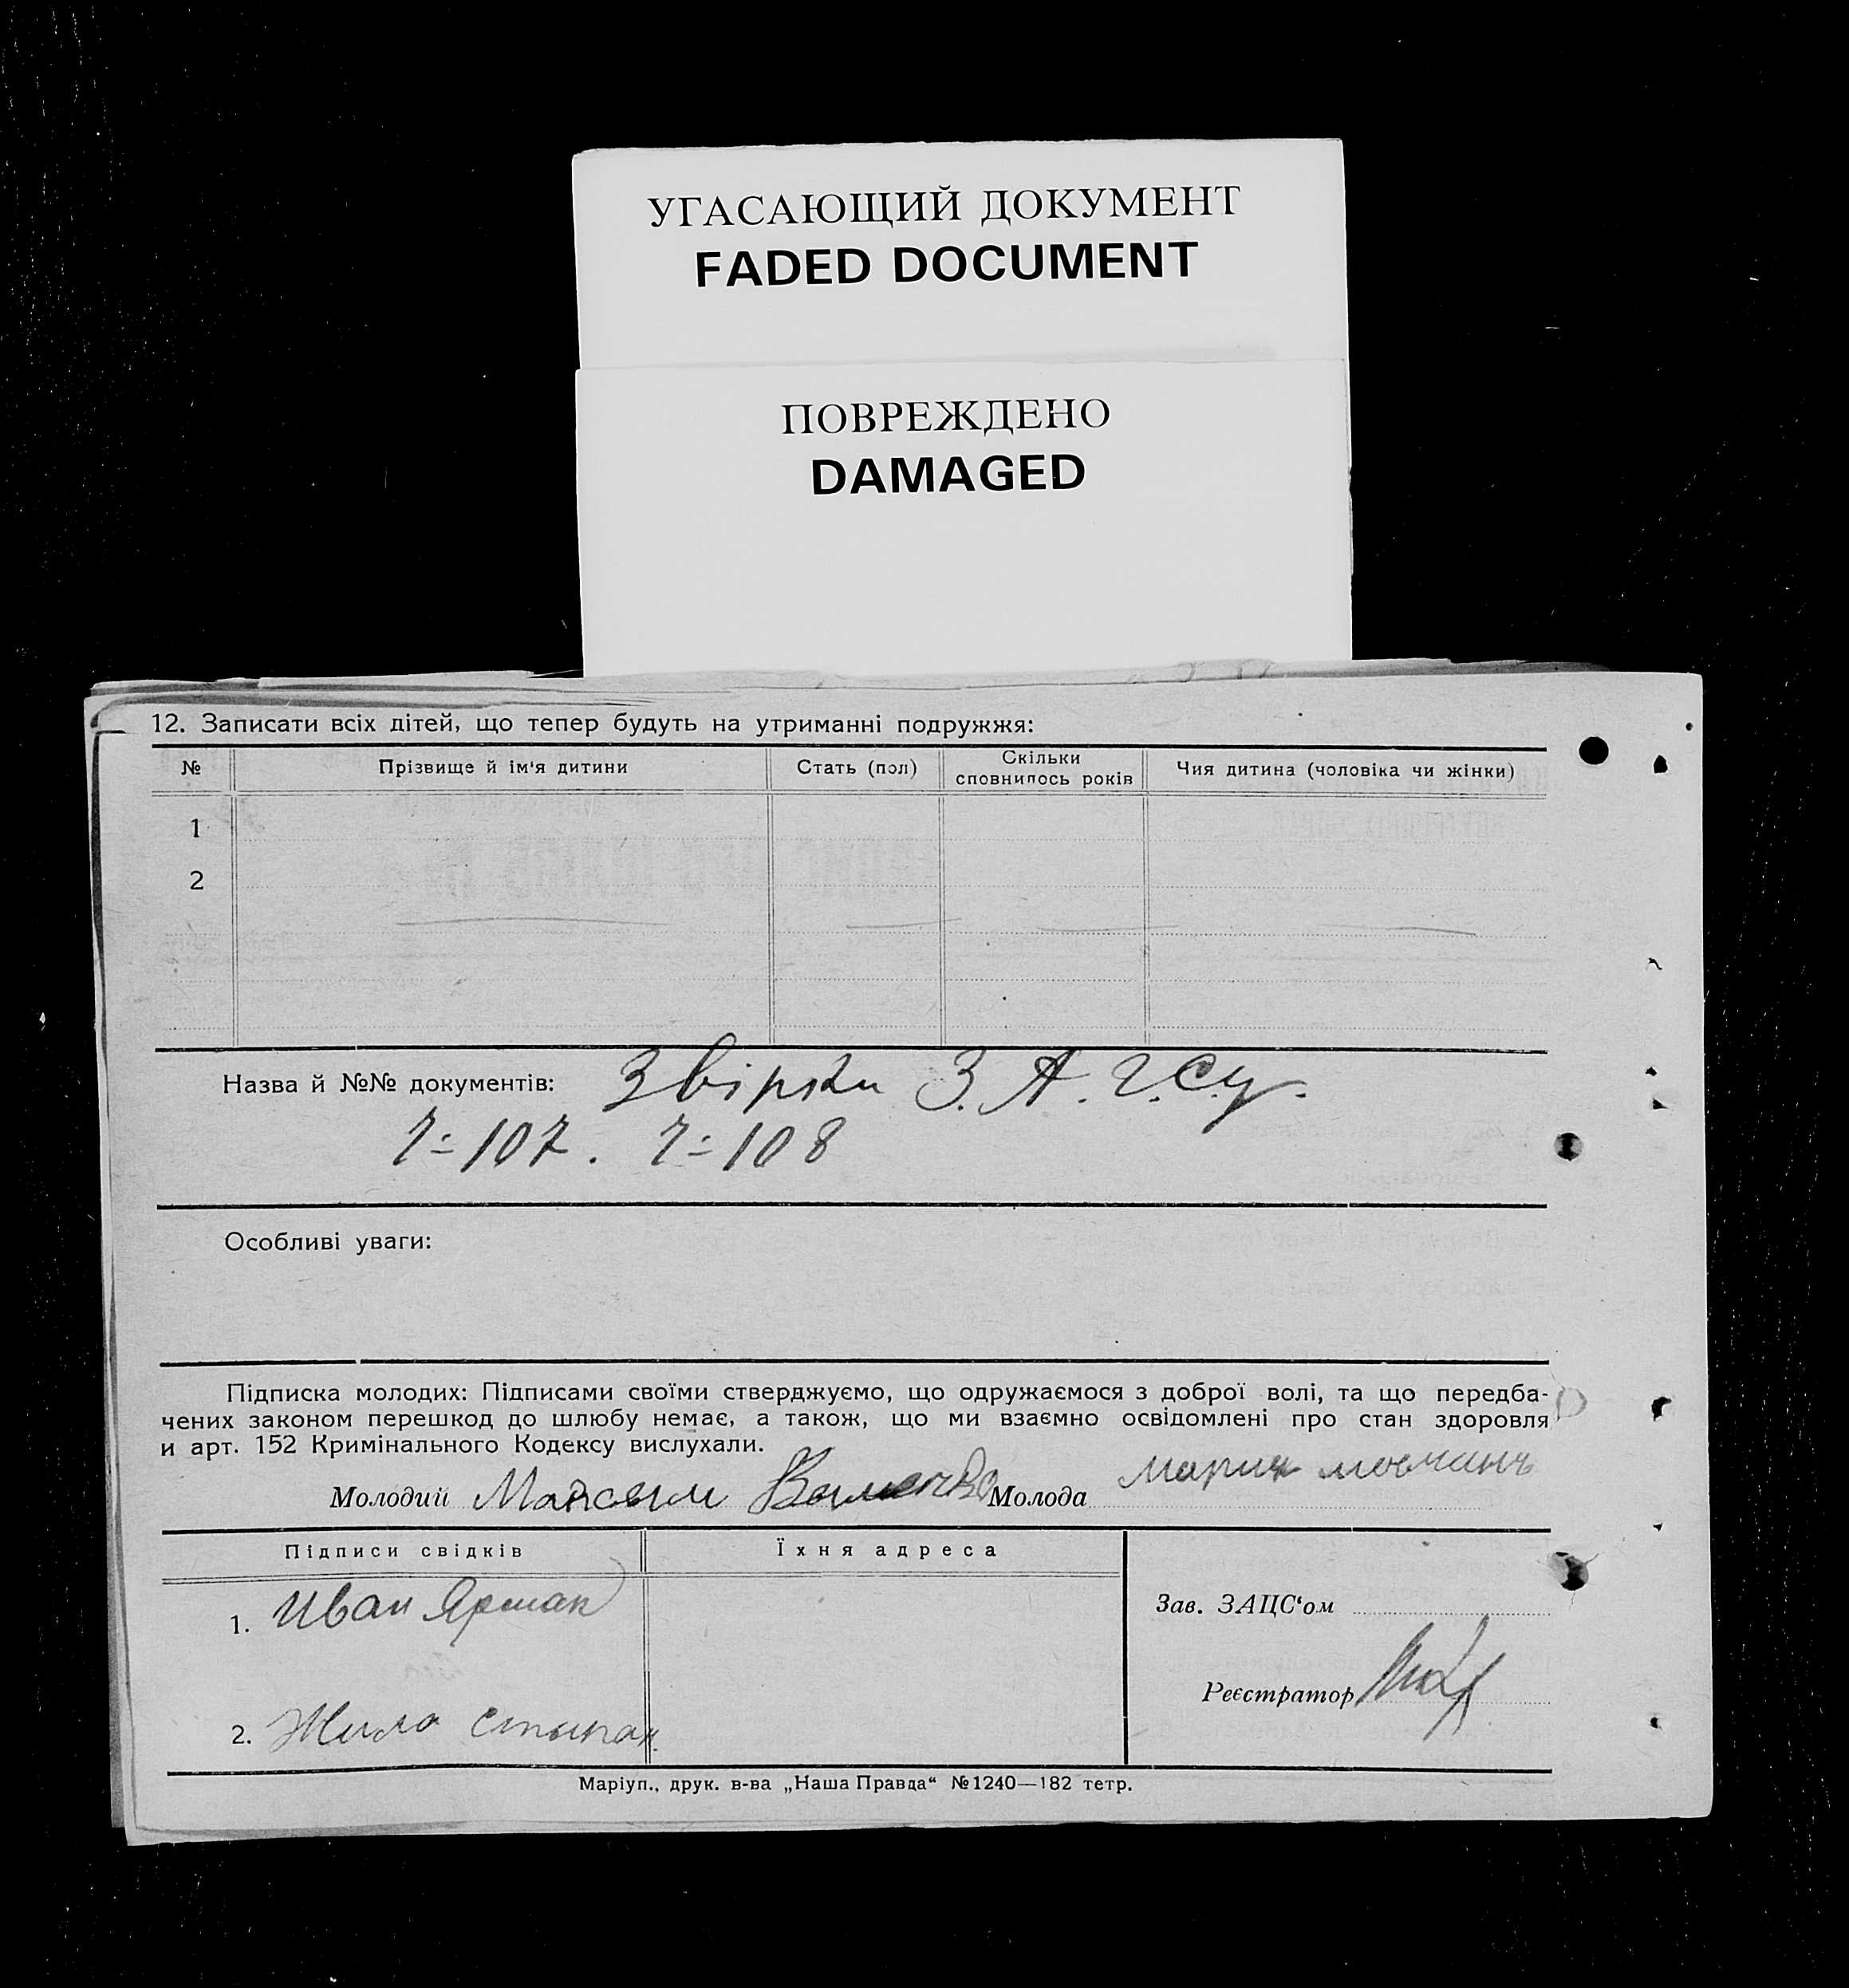 УГАСАЮЩИЙ ДОКУМЕНТ
FADED DOCUMENT
ПОВРЕЖДЕНО
DAMAGED
12. Записати всіх дітей, що тепер будуть на утриманні подружжя:
№ Прізвище й ім'я дитини Стать (пол) Скільки сповнилось років Чия дитина (чоловіка чи жінки)
1
2
Назва й №№ документів: Звірки З.А.Г.С.у.
107. 108
Особливі уваги:
Підписка молодих: Підписами своїми стверджуємо, що одружаємося з доброї волі, та що передба-
чених законом перешкод до шлюбу немає, а також, що ми взаємно освідомлені про стан здоровля
и арт. 152 Кримінального Кодексу вислухали.
Молодий Максим Молода Мария
Підписи свідків Їхня адреса
1. Иван Ярмак
Зав. ЗАЦС'ом
Реєстратор
2. Жила Стыпан
Маріуп., друк. в-ва „Наша Правда“ №1240—182 тетр.